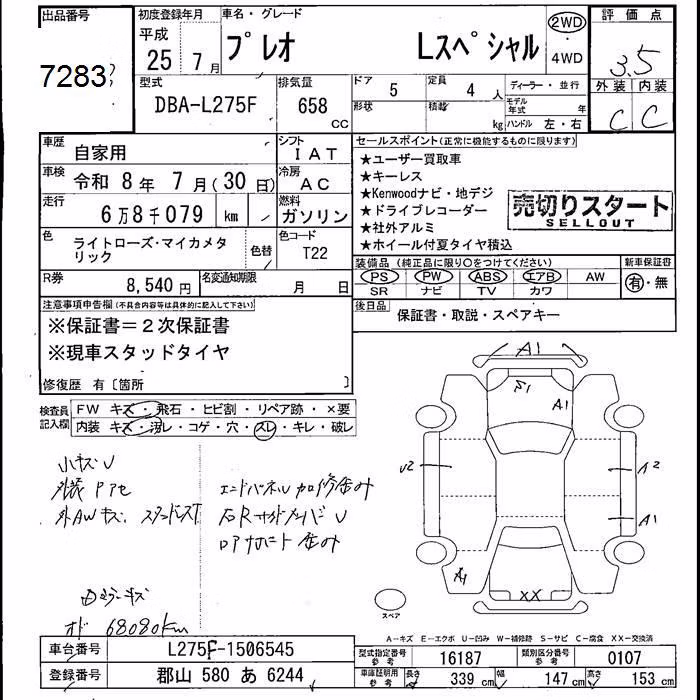 出品番号
7283
初度登録年月
平成
25年 7月
車名・グレード
プレオ Lスペシャル
2WD
・
4WD
評価点
3.5
外装 内装
C C
型式
DBA-L275F
排気量
658
CC
ドア
5
定員
4人
形状
積載
kg
ディーラー・並行
モデル年式 年
ハンドル 左・右
車歴
自家用
シフト
IAT
車検
令和 8年 7月(30日)
冷房
AC
走行
6万8千079 km
燃料
ガソリン
色
ライトローズ・マイカメタリック
色替
色コード
T22
R券
8,540円
名変通知期限
月 日
セールスポイント(正常に機能するものに限ります)
★ユーザー買取車
★キーレス
★Kenwoodナビ・地デジ
★ドライブレコーダー
★社外アルミ
★ホイール付夏タイヤ積込
売切りスタート
SELLOUT
装備品(純正品に限り○をつけてください)
PS PW ABS エアB AW
SR ナビ TV カワ
新車保証書
有・無
後日品
保証書・取説・スペアキー
注意事項申告欄(不具合内容等は具体的に記入して下さい)
※保証書=2次保証書
※現車スタッドタイヤ
修復歴 有〔箇所 〕
検査員記入欄
FW キズ・飛石・ヒビ割・リペア跡・×要
内装 キズ・汚レ・コゲ・穴・スレ・キレ・破レ
小キズU
外AWキズ
エンドパネル加修歪み
オド 68080km
A1
F1
A1
U2
A2
A1
A1
XX
スペア
A-キズ E-エクボ U-凹み W-補修跡 S-サビ C-腐食 XX-交換済
車台番号
L275F-1506545
登録番号
郡山 580 あ 6244
型式指定番号
参考
16187
類別区分番号
参考
0107
車庫証明用
参考
長さ
339 cm
幅
147 cm
高さ
153 cm